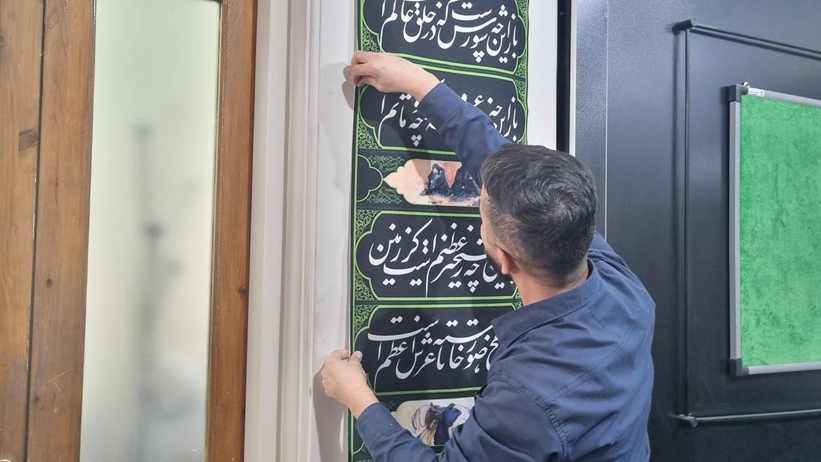 باز این چه شورش است که در خلق عالم
باز این چه و چه ماتم
چه رستخیز عظیم است کز زمین
صور خاسته تا عرش اعظم است